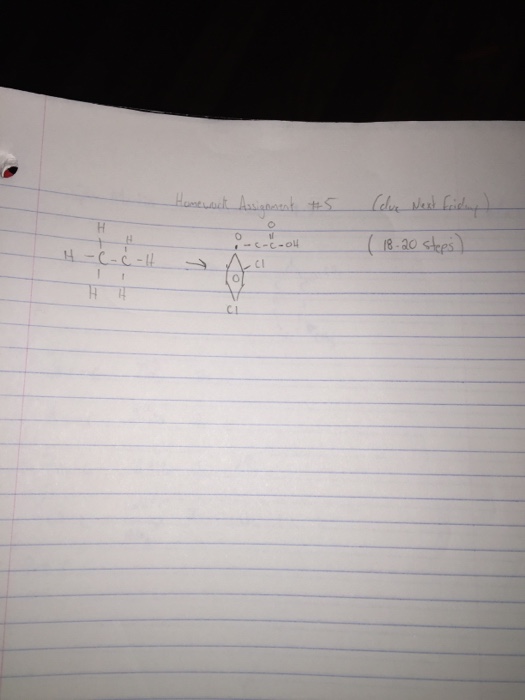 Homework Assignment #5 (due Next Friday)
(18-20 steps)
H H
H-C-C-H
H H
→
O
O -C-C-OH
Cl
O
Cl